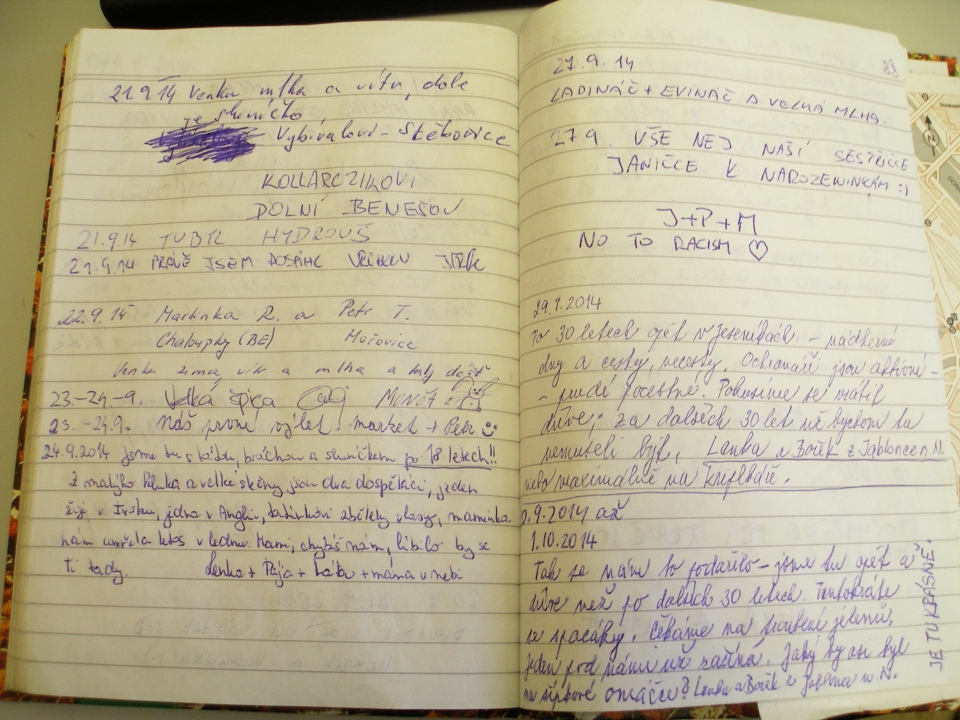 21.9.14 Venku mlha a vítr, dole
je sluníčko
Vybíralovi - Štěbořice
KOLLARCZIKOVI
DOLNÍ BENEŠOV
21.9.14 TUBTL HYDROUŠ
21.9.14 PRÁVĚ JSEM DOSÁHL
22.9.14 Martinka R. a Petr T.
Chaloupky (BE) Hořovice
Venku zima, vítr a mlha a
23.-24.-9. Velká špica
23.-24.9. Náš první výlet. Market + Petr
24.9.2014 jsme tu s bráchou a sluníčkem po 18 letech!!
Z malýho a velké jsou dva dospěláci, jeden
žije v Irsku, jedna v Anglii, zbělely vlasy, maminka
nám umřela letos v lednu. Mami, chybíš nám, líbilo by se
ti tady. Lenka + Pája + táta + máma v nebi
88
27.9.14
LADINÁČ + EVINÁČ A VELKÁ MLHA.
27.9. VŠE NEJ NAŠÍ SESTŘIČCE
JANIČCE K NAROZENINKÁM :)
J+P+M
NO TO RACISM ♡
29.9.2014
Po 30 letech opět v Jeseníkách - nádherné
dny a cesty, necesty. Ochranáři jsou aktivní -
- právě pocestné. Pokusíme se vrátit
dříve; za dalších 30 let už bychom tu
nemuseli být, Lenka a Bořek z Jablonce n. N.
nebo maximálně na
0.9.2014 až
1.10.2014
Tak se nám to podařilo - jsme tu opět a
dříve než po dalších 30 letech. Tentokráte
se spacáky. Čekáme na troubení jelenů,
jeden pod námi už začíná. Jaký by asi byl
na šípkové omáčce? Lenka a Bořek z Jablonce n. N.
JE TU KRÁSNĚ!